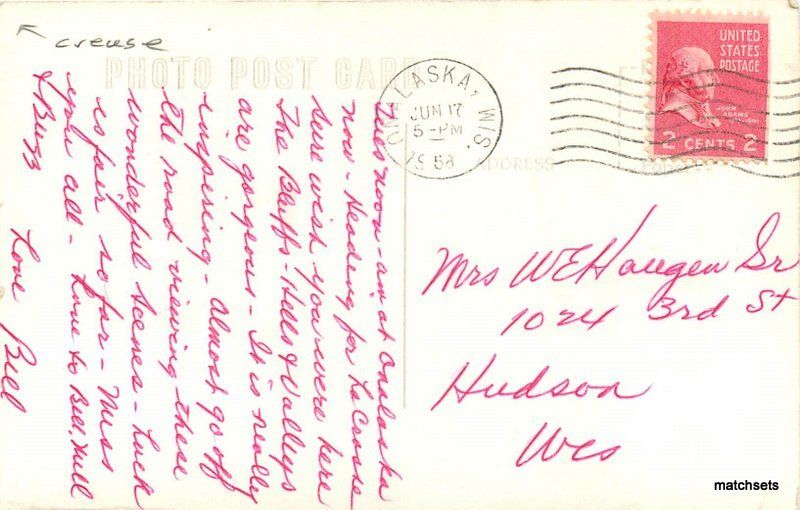 creuse
PHOTO POST CARD
ONALASKA, WIS.
JUN 17
5 - PM
1958
UNITED
STATES
POSTAGE
JOHN
ADAMS
2 CENTS 2
ADDRESS
Tues noon - am at Onalaska
now - Heading for LaCrosse
sure wish you were here
The Bluffs - Hills & Valleys
are gorgeous - It is really
inspiring - Almost go off
the road viewing these
wonderful scenes - Luck
is fair so far - Miss
you all - Love to Bill,
& Buzz
Love Bill
Mrs WE Haugen Sr
1024 3rd St
Hudson
Wis
matchsets